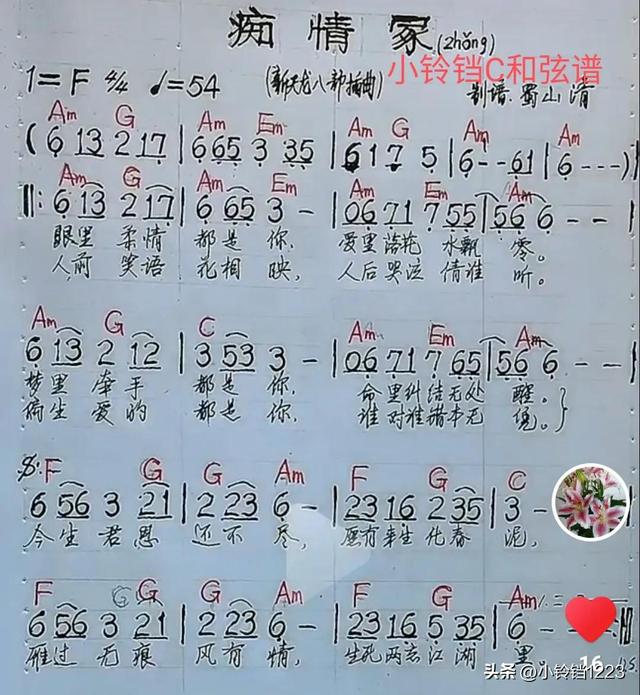 痴情冢(zhǒng)
小铃铛C和弦谱
1=F 4/4 ♩=54 (新天龙八部插曲) 制谱.蜀山清
Am G Am Em Am G Am Am
(6 13 2 17 | 6 65 3 35 | 6 1 7 5 | 6 - - 61 | 6 - - -)
Am G Am Em Am Em Am
‖: 6 13 2 17 | 6 65 3 - | 06 71 7 55 | 56 6 - - |
眼里 柔情 都是你, 爱里落花 水飘零。
人前 笑语 花相映, 人后哭泣 倩谁听。
Am G C Am Em Am
6 13 2 12 | 3 53 3 - | 06 71 7 65 | 56 6 - - |
梦里 牵手 都是你, 命里纠结无处 醒。
偷生 爱的 都是你, 谁对谁错本无 凭。}
F G G Am F G C
6 56 3 21 | 2 23 6 - | 23 16 2 35 | 3 -
今生君恩 还不尽, 愿有来生 化春泥,
F G G G Am F G Am
6 56 3 21 | 2 23 6 - | 23 16 5 35 | 6 -
雁过无痕 风有情, 生死两忘 江湖里。
16
头条 @小铃铛1223